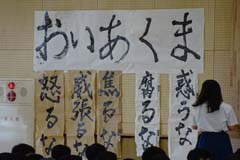 おいあくま
怒るな
威張るな
焦るな
腐るな
惑うな